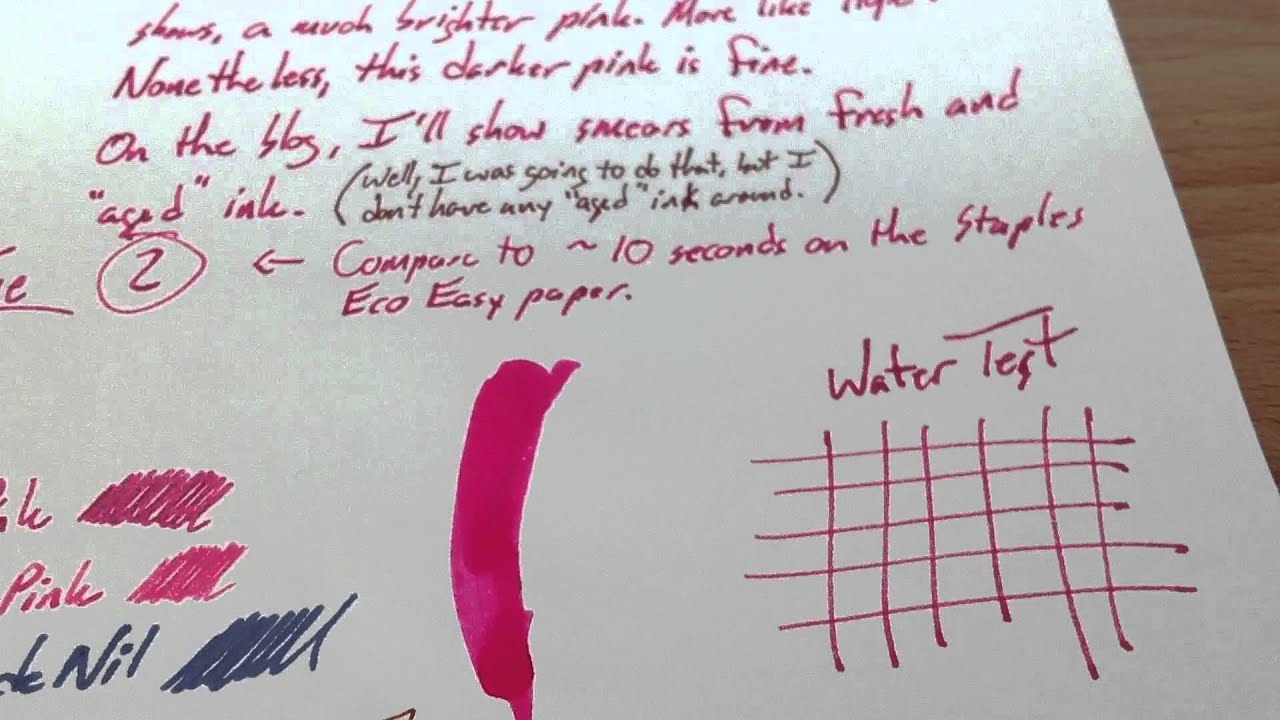 shows, a much brighter pink. More like
Nonetheless, this darker pink is fine.
On the blog, I'll show smears from fresh and
"aged" ink. (Well, I was going to do that, but I
don't have any "aged" ink around.)
2 ← Compare to ~10 seconds on the Staples
Eco Easy paper.
Water Test
Pink
de Nil